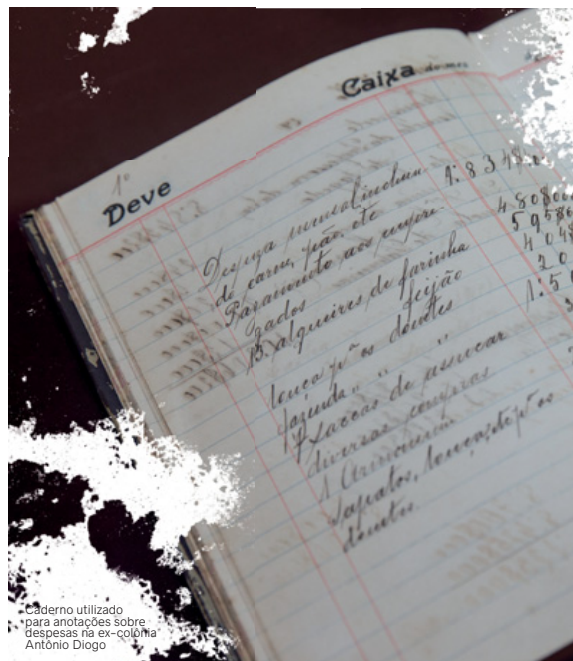 Caixa do mes
1º
Deve
Despeza inclu
de carne, pão, etc 1:834
Pagamento aos empre- 480
gados 595
15 alqueires de farinha 404
" feijão 20
louça pª os doentes 1:5
fazenda " " "
saccas de assucar
diversas compras
1 Armonium
Sapatos, louças, etc pª os
doentes.
Caderno utilizado
para anotações sobre
despesas na ex-colônia
Antônio Diogo